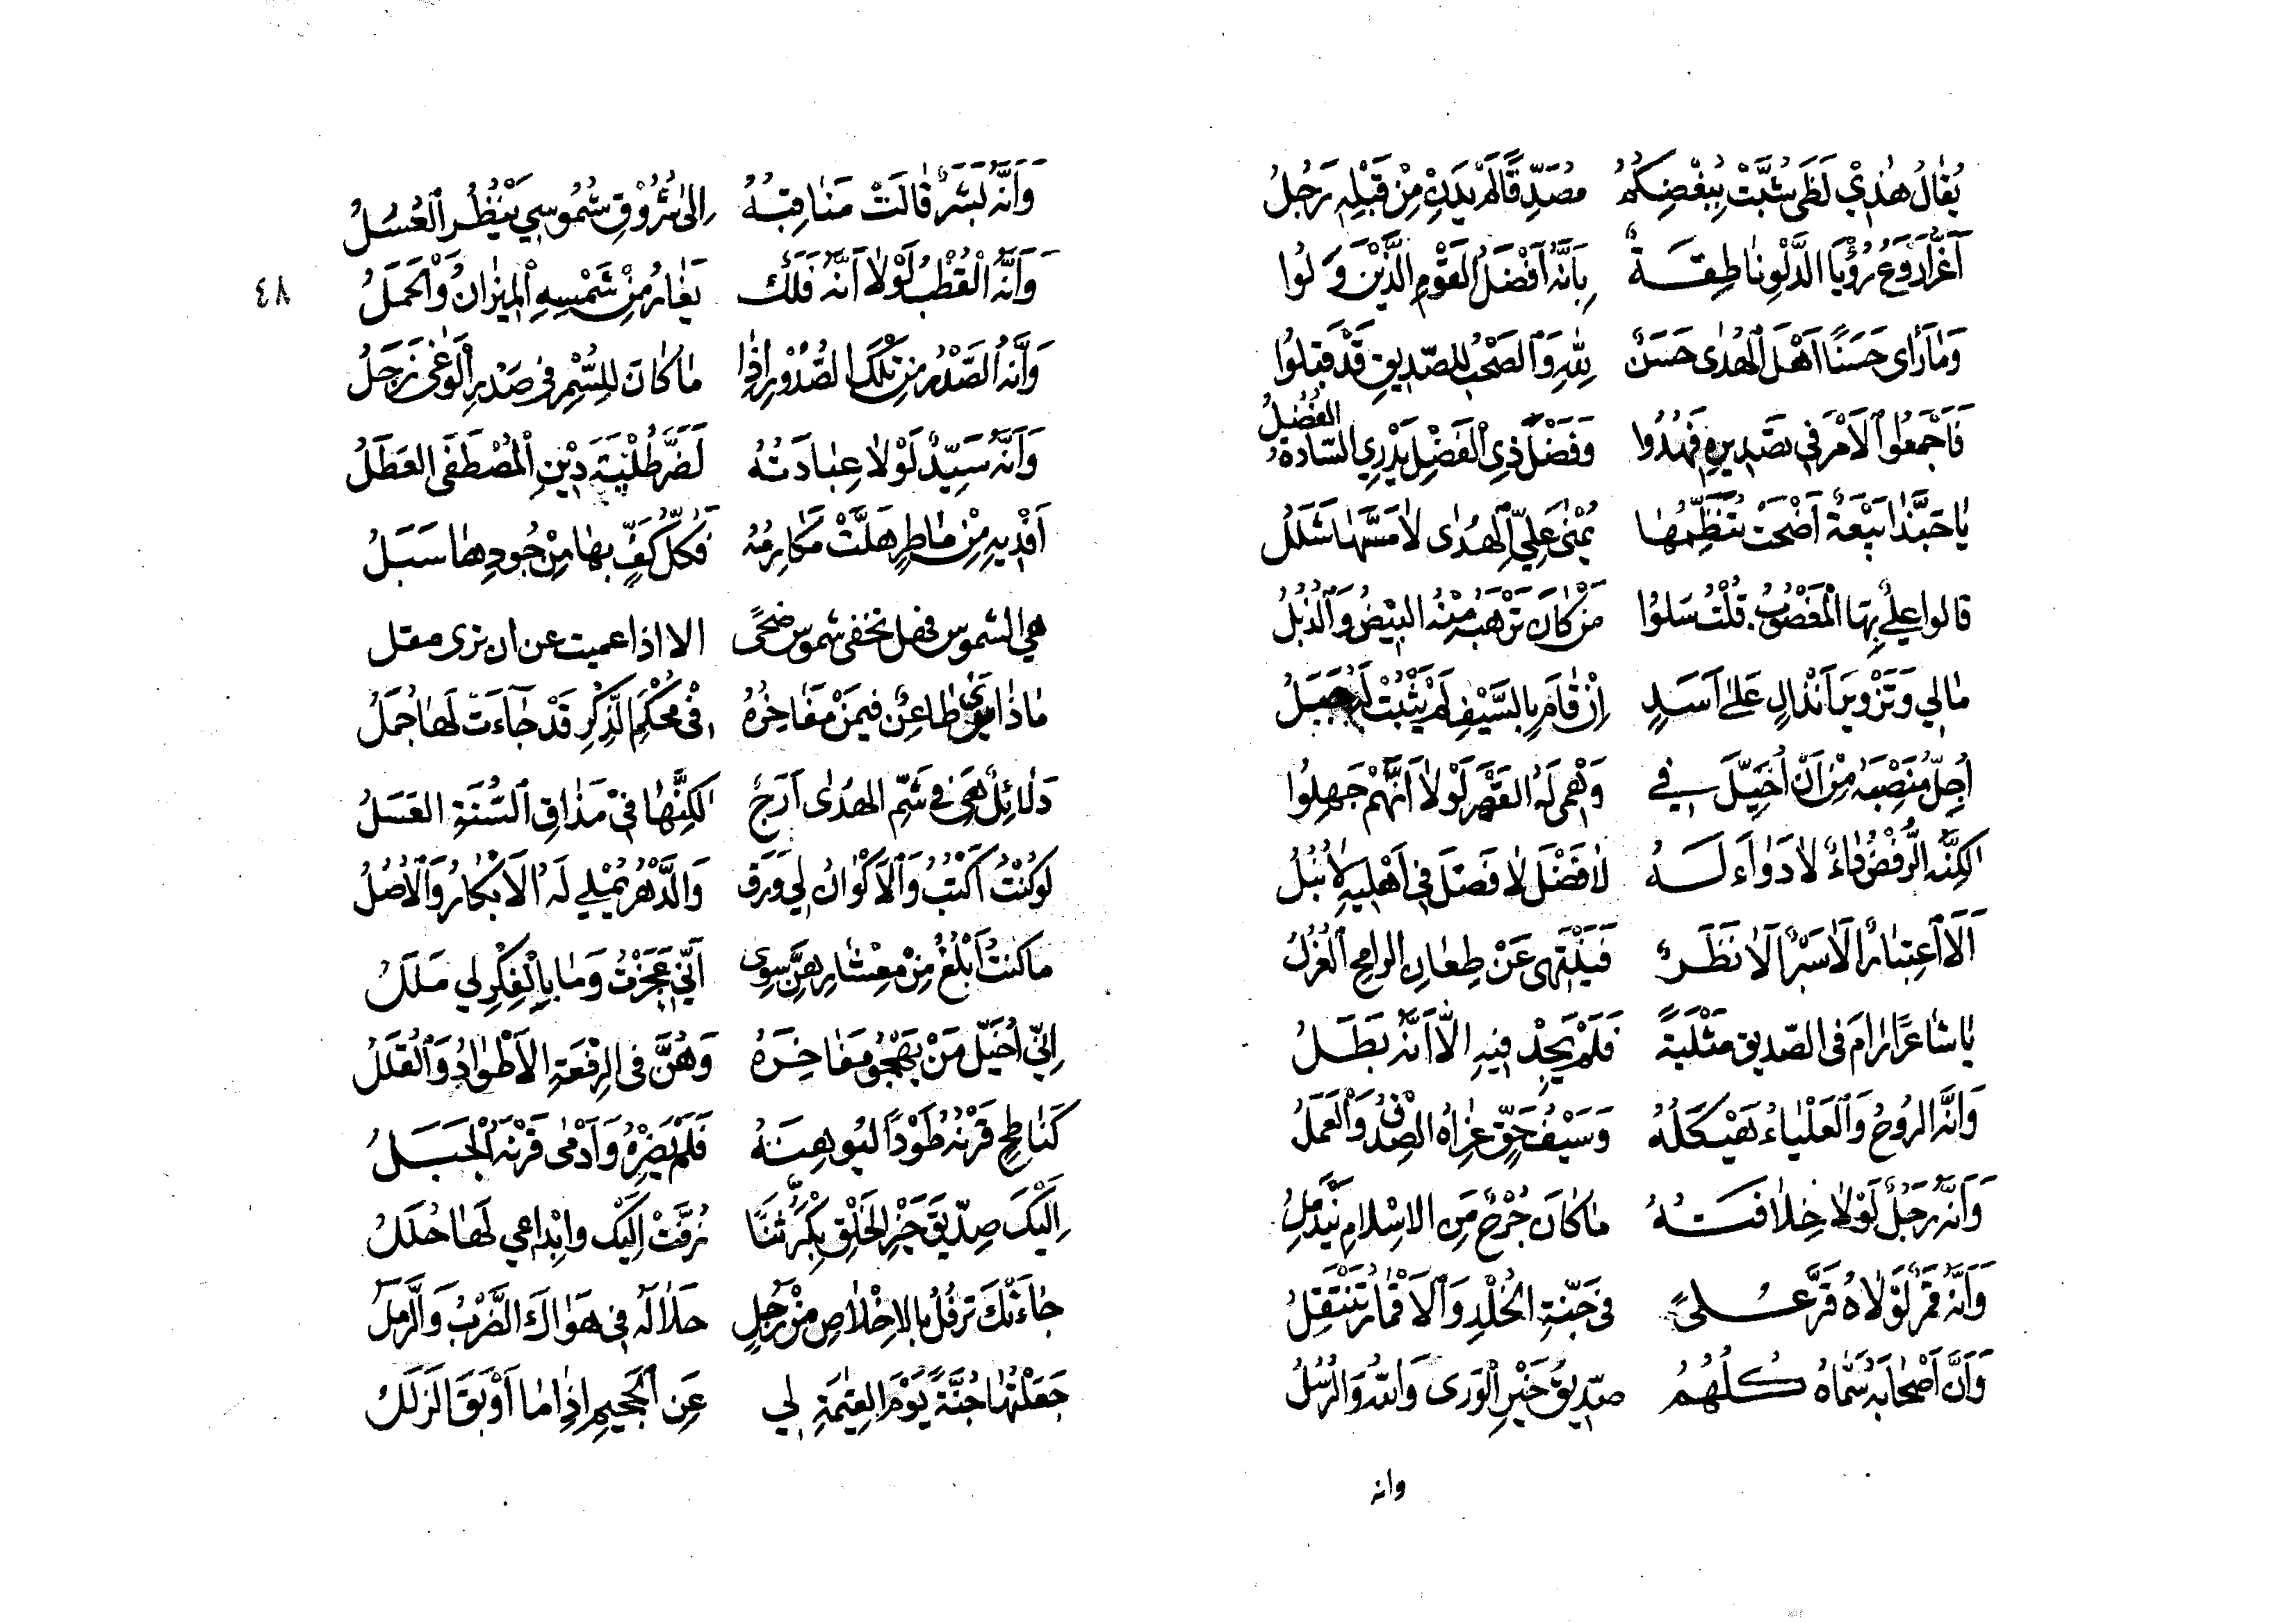 يُقَالُ هٰذِي لَظَى شُبَّتْ بِبُغْضِكُمُ مُصَدِّقًا لَمْ يَكُ مِنْ قَبْلِهِ رَجُلُ
أَغَرُّ أَرْوَعُ رُؤْيَا الدَّلْوِ نَاطِقَةٌ بِأَنَّهُ أَفْضَلُ القَوْمِ الَّذِيْنَ وَلُوا
وَمَا رَأَى حَسَنًا أَهْلَ الْهُدٰى حَسَنٌ لِلّٰهِ وَالصَّحْبُ لِلصِّدِّيقِ قَدْ قَبِلُوا
فَأَجْمَعُوا الْأَمْرَ فِي تَصْدِيرِهِ فَهُدُوا وَفَضْلُ ذِي الْفَضْلِ يَدْرِي السَّادَةُ الفُضُلُ
يَا حَبَّذَا بَيْعَةٌ أَضْحَتْ تُنَظِّمُهَا يُمْنَى عَلِيِّ الْهُدٰى لَا مَسَّهَا شَلَلُ
قالوا عَلِيٌّ بِهَا الْمَغْصُوبُ قُلْتُ سَلُوا مَنْ كَانَ تَرْهَبُ مِنْهُ البِيْضُ وَالذُّبُلُ
مَالِي وَتَزْوِيرَ أَنْذَالٍ عَلَى أَسَدٍ إِنْ قَامَ بِالسَّيْفِ لَمْ يَثْبُتْ لَهُ جَبَلُ
أُجِلُّ مَنْصِبَهُ مِنْ أَنْ أُخَيِّلَ فِي وَهْمِي لَهُ القَهْرَ لَوْلَا أَنَّهُمْ جَهِلُوا
لٰكِنَّهُ الرَّفْضُ دَاءٌ لَا دَوَاءَ لَهُ لَا فَضْلَ لَا فَصْلَ فِي أَهْلِيهِ لَا نُبُلُ
أَلَا اعْتِبَارٌ أَلَا سَبْرٌ أَلَا نَظَرٌ فَيَنْتَهِي عَنْ طِعَانِ الرامِحِ الْعُزُلُ
يَا شَاعِرًا رَامَ فِي الصّدِيقِ مَثْلَبَةً فَلَمْ يَجِدْ فِيهِ إِلَّا أَنَّهُ بَطَلُ
وَأنَّهُ الرُوحُ وَالْعَلْيَاءُ هَيْكَلُهُ وَسَيْفُ حَقٍّ غِرَاهُ الصِّدْقُ وَالْعَمَلُ
وَأَنَّهُ رَجُلٌ لَوْلَا خِلَافَتُهُ مَا كَانَ جُرْحٌ مِنَ الاِسْلَامِ يَنْدَمِلُ
وَأَنَّهُ قَمَرٌ لَوْلَاهُ قَرَّ عُلىً فِي جَنَّةِ الْخُلْدِ وَالْأَقْمَارُ تَنْتَقِلُ
وَأَنَّ أَصْحَابَهُ سَمَّاهُ كُلُّهُمُ صِدِّيقُ خَيْرِ الْوَرَى وَاللهُ وَالرُّسُلُ
وانه
وَأَنَّهُ بَشَرٌ قَالَتْ مَنَاقِبُهُ إِلَى شُرُوْقِ شُمُوسِي يَنْظُرُ
٤٨
وَأَنَّهُ الْقُطْبُ لَوْلَا أَنَّهُ فَلَكٌ يَغَارُ مِنْ شَمْسِهِ الْمِيزَانُ وَالْحَمَلُ
وَأَنَّهُ الصَّدْرُ مِنْ تِلْكَ الصُّدُوْرِ إِذَا مَا كَانَ لِلسُّمْرِ فِي صَدْرِ الْوَغَى زَجَلُ
وَأَنَّهُ سَيِّدٌ لَوْلَا عِبَادَتُهُ لَضَرَّ دِيْنِ الْمُصْطَفَى العَطَلُ
أَفْدِيهِ مِنْ مَاطِرٍ هَلَّتْ مَكَارِمُهُ فَكُلُّ كَفٍّ بِهَا مِنْ جُودِهَا سَبَلُ
هي الشموس فهل تخفى شموس ضحًى الا اذا عميت عن ان ترى مقل
مَاذَا يَرَى طَاعِنٌ فِيمَنْ مَفَاخِرُهُ فِي مُحْكَمِ الذِّكْرِ قَدْ جَاءَتْ لَهَا جُمَلُ
دَلَائِلٌ هِيَ فِي شَمِّ الهُدٰى أَرَجٌ لٰكِنَّهَا فِي مَذَاقِ السُّنَّةِ العَسَلُ
لَوْ كُنْتُ أَكْتُبُ وَالْأَكْوَانُ لِي وَرَقٌ وَالدَّهْرُ يُمْلِي لَهُ الْأَبْكَارُ وَالْأُصُلُ
ما كنتُ أَبْلُغُ مِنْ مِعْشَارِهِنَّ سِوَى أَنِّي عَجَزْتُ وَمَا بِالْفِكْرِ لِي مَلَلُ
إِنِّي أُخَيِّلُ مَنْ يَهْجُو مَفَاخِرَهُ وَهُنَّ فِي الرِفْعَةِ الأَطْوَادُ وَالْقُلَلُ
كَنَاطِحٍ قَرْنُهُ طَوْدًا لِيُوهِنَهُ فَلَمْ يَضِرْهُ وَأَدْمَى قَرْنَهُ الْجَبَلُ
إِلَيْكَ صِدِّيقَ خَيْرِ الخَلْقِ بِكْرُ ثَنًا زُفَّتْ إِلَيْكَ وَابْدَاعِي لَهَا حُلَلُ
جَاءَتْكَ تَرْفُلُ بِالاِخْلَاصِ مِنْ رَجُلٍ حَلَا لَهُ فِي هَوَاكَ الضَّرْبُ وَالرَّمَلُ
جَعَلْتُهَا جُنَّةً يَوْمَ القِيٰمَةِ لِي عَنِ الْجَحِيمِ إِذَا مَا أَوْبَقَ الزَلَلُ